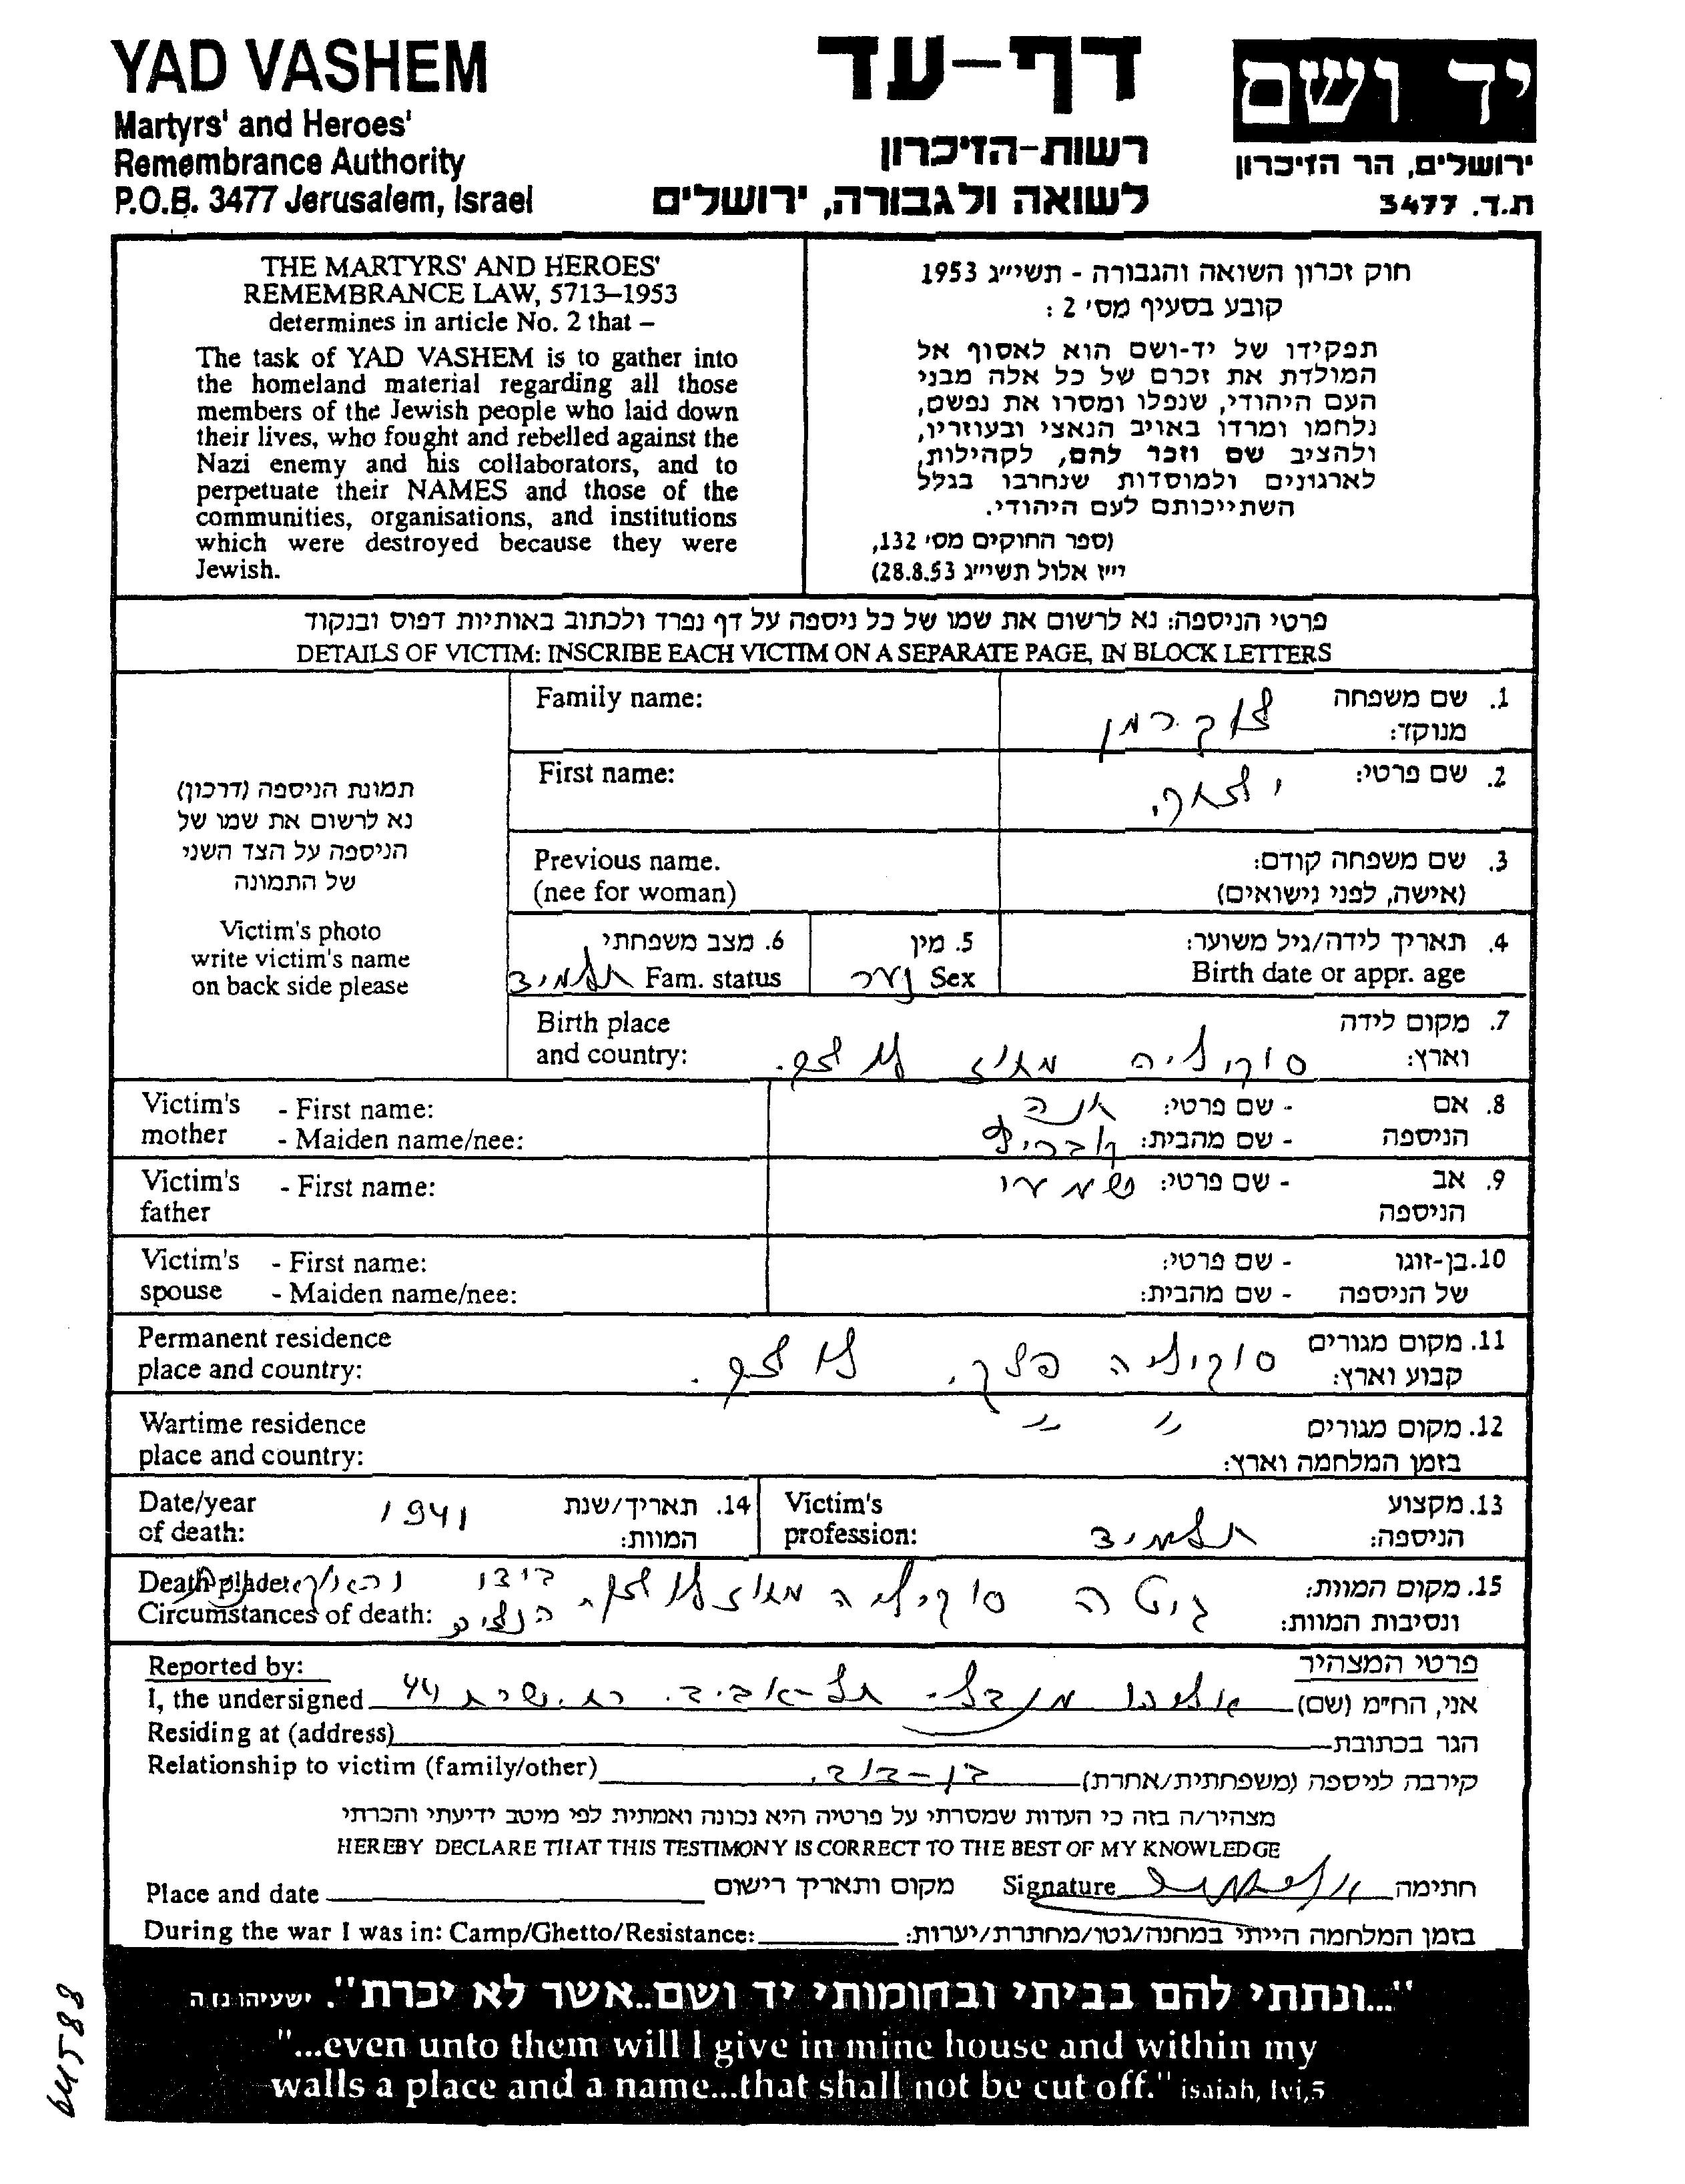 YAD VASHEM
Martyrs' and Heroes'
Remembrance Authority
P.O.B. 3477 Jerusalem, Israel
דף-עד
רשות-הזיכרון
לשואה ולגבורה, ירושלים
יד ושם
ירושלים, הר הזיכרון
ת.ד. 3477
THE MARTYRS' AND HEROES'
REMEMBRANCE LAW, 5713–1953
determines in article No. 2 that –
The task of YAD VASHEM is to gather into
the homeland material regarding all those
members of the Jewish people who laid down
their lives, who fought and rebelled against the
Nazi enemy and his collaborators, and to
perpetuate their NAMES and those of the
communities, organisations, and institutions
which were destroyed because they were
Jewish.
חוק זכרון השואה והגבורה - תשי״ג 1953
קובע בסעיף מס׳ 2 :
תפקידו של יד-ושם הוא לאסוף אל
המולדת את זכרם של כל אלה מבני
העם היהודי, שנפלו ומסרו את נפשם,
נלחמו ומרדו באויב הנאצי ובעוזריו,
ולהציב שם וזכר להם, לקהילות,
לארגונים ולמוסדות שנחרבו בגלל
השתייכותם לעם היהודי.
(ספר החוקים מס׳ 132,
י״ז אלול תשי״ג 28.8.53)
פרטי הניספה: נא לרשום את שמו של כל ניספה על דף נפרד ולכתוב באותיות דפוס ובנקוד
DETAILS OF VICTIM: INSCRIBE EACH VICTIM ON A SEPARATE PAGE, IN BLOCK LETTERS
תמונת הניספה (דרכון)
נא לרשום את שמו של
הניספה על הצד השני
של התמונה
Victim's photo
write victim's name
on back side please
Family name: צוקרמן 1. שם משפחה
מנוקד:
First name: יצחק 2. שם פרטי:
Previous name. 3. שם משפחה קודם:
(nee for woman) (אישה, לפני נישואים)
6. מצב משפחתי 5. מין 4. תאריך לידה/גיל משוער:
תלמיד Fam. status נער Sex Birth date or appr. age
Birth place 7. מקום לידה
and country: סוקוליה מחוז וארץ:
Victim's - First name: חנה - שם פרטי: 8. אם
mother - Maiden name/nee: - שם מהבית: הניספה
Victim's - First name: - שם פרטי: 9. אב
father הניספה
Victim's - First name: - שם פרטי: 10. בן-זוגו
spouse - Maiden name/nee: - שם מהבית: של הניספה
Permanent residence 11. מקום מגורים
place and country: סוקוליה פלך. קבוע וארץ:
Wartime residence " " 12. מקום מגורים
place and country: בזמן המלחמה וארץ:
Date/year 1941 14. תאריך/שנת Victim's 13. מקצוע
of death: המוות: profession: תלמיד הניספה:
Death place גיטה סוקוליה מחוז 15. מקום המוות:
Circumstances of death: הנצים ונסיבות המוות:
Reported by: פרטי המצהיר
I, the undersigned אליהו מנדל. תל-אביב. 44 אני, הח״מ (שם)
Residing at (address) הגר בכתובת
Relationship to victim (family/other) בן-דוד. קירבה לניספה (משפחתית/אחרת)
מצהיר/ה בזה כי העדות שמסרתי על פרטיה היא נכונה ואמתית לפי מיטב ידיעתי והכרתי
HEREBY DECLARE THAT THIS TESTIMONY IS CORRECT TO THE BEST OF MY KNOWLEDGE
Place and date מקום ותאריך רישום Signature חתימה
During the war I was in: Camp/Ghetto/Resistance: בזמן המלחמה הייתי במחנה/גטו/מחתרת/יערות:
"...ונתתי להם בביתי ובחומותי יד ושם..אשר לא יכרת". ישעיהו נו ה
"...even unto them will I give in mine house and within my
walls a place and a name...that shall not be cut off." isaiah, lvi,5